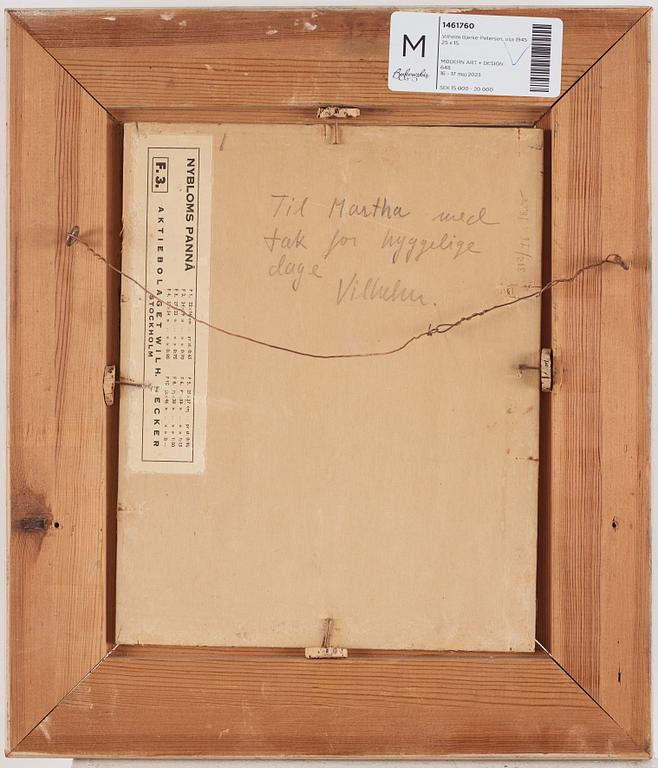 1461760
Vilhelm Bjerke-Petersen, olja 1945
25 x 15
MODERN ART + DESIGN
648
16 - 17 maj 2023
SEK 15 000 - 20 000
M
Bukowskis
NYBLOMS PANNÅ
F. 3.
AKTIEBOLAGET WILH. BECKER
STOCKHOLM
Til Martha med
tak for hyggelige
dage
Vilhelm.